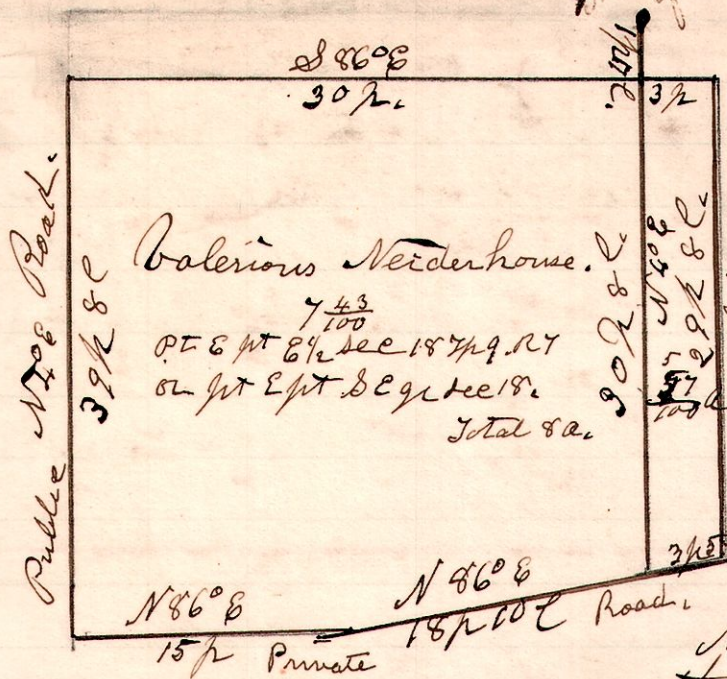 S 86° E
30 p.
3 p
Public N 4° E Road.
39 p 8 l
Valerious Neiderhouse.
7 43/100
pt E pt E 1/2 Sec 18 Tp 9. R 7
or pt E pt S E qr Sec 18.
Total 8 a.
30 p 8 l.
N 4° E
29 p 8 l.
57/100 a
N 86° E
15 p
Private
N 86° E
18 p 10 l
Road.
3 p 5